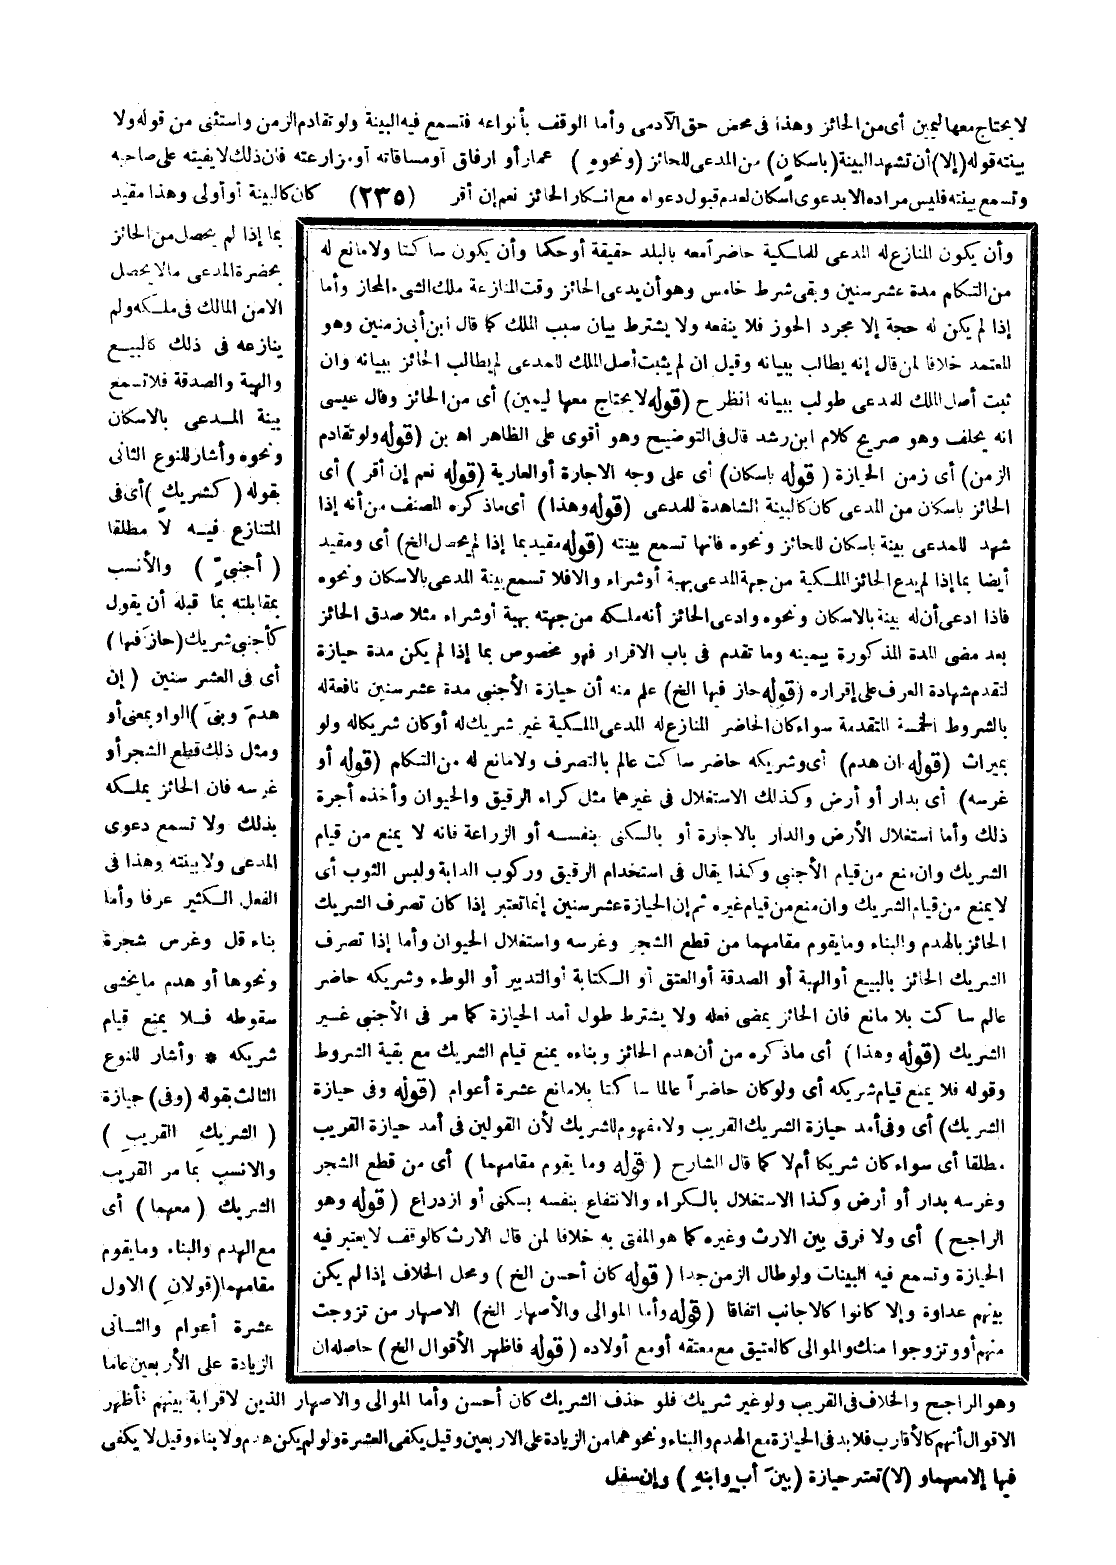 لا يحتاج معها ليمين أى من الحائز وهذا فى محض حق الآدمى وأما الوقف بأنواعه فتسمع فيه البينة ولو تقادم الزمن واستثنى من قوله ولا
بينته قوله (إلا) أن تشهد البينة (باسكانٍ) من المدعى للحائز (ونحوهِ) عمار أو ارفاق أو مساقاته أو مزارعته فان ذلك لا يفيته على صاحبه
وتسمع بينته فليس مراده الا بدعوى اسكان لعدم قبول دعواه مع انكار الحائز نعم إن أقر (٢٣٥) كان كالبينة أو أولى وهذا مقيد
بما إذا لم يحصل من الحائز
بحضرة المدعى مالا يحصل
الا من المالك فى ملكه ولم
ينازعه فى ذلك كالبيع
والهبة والصدقة فلا تسمع
بينة المدعى بالاسكان
ونحوه وأشار للنوع الثانى
بقوله (كشريكٍ) أى فى
المتنازع فيه لا مطلقا
(أجنبىٍّ) والأنسب
بمقابلته بما قبله أن يقول
كأجنبى شريك (حازَ فيها)
أى فى العشر سنين (إن
هدمَ وبنىَ) الواو بمعنى أو
ومثل ذلك قطع الشجر أو
غرسه فان الحائز يملكه
بذلك ولا تسمع دعوى
المدعى ولا بينته وهذا فى
الفعل الكثير عرفا وأما
بناء قل وغرس شجرة
ونحوها أو هدم ما يخشى
سقوطه فلا يمنع قيام
شريكه * وأشار للنوع
الثالث بقوله (وفى) حيازة
(الشريكِ القريبِ)
والانسب بما مر القريب
الشريك (معهما) أى
مع الهدم والبناء وما يقوم
مقامهما (قولانِ) الاول
عشرة أعوام والثانى
الزيادة على الأربعين عاما
وهو الراجح والخلاف فى القريب ولو غير شريك فلو حذف الشريك كان أحسن وأما الموالى والاصهار الذين لا قرابة بينهم فأظهر
الاقوال أنهم كالأقارب فلا بد فى الحيازة مع الهدم والبناء ونحوهما من الزيادة على الاربعين وقيل يكفى العشرة ولو لم يكن هدم ولا بناء وقيل لا يكفى
فيها إلا معهما و(لا) تعتبر حيازة (بينَ أبٍ وابنهِ) وإن سفل
وأن يكون المنازع له المدعى للملكية حاضرا معه بالبلد حقيقة أو حكما وأن يكون ساكتا ولا مانع له
من التكلم مدة عشر سنين وبقى شرط خامس وهو أن يدعى الحائز وقت المنازعة ملك الشىء المحاز وأما
إذا لم يكن له حجة إلا مجرد الحوز فلا ينفعه ولا يشترط بيان سبب الملك كما قال ابن أبى زمنين وهو
المعتمد خلافا لمن قال إنه يطالب ببيانه وقيل ان لم يثبت أصل الملك للمدعى لم يطالب الحائز ببيانه وان
ثبت أصل الملك للمدعى طولب ببيانه انظر ح (قوله لا يحتاج معها ليمين) أى من الحائز وقال عيسى
انه يحلف وهو صريح كلام ابن رشد قال فى التوضيح وهو أقوى على الظاهر اه بن (قوله ولو تقادم
الزمن) أى زمن الحيازة (قوله باسكان) أى على وجه الاجارة أو العارية (قوله نعم إن أقر) أى
الحائز باسكان من المدعى كان كالبينة الشاهدة للمدعى (قوله وهذا) أى ماذكره المصنف من أنه إذا
شهد للمدعى بينة باسكان للحائز ونحوه فانها تسمع بينته (قوله مقيد بما إذا لم يحصل الخ) أى ومقيد
أيضا بما إذا لم يدع الحائز الملكية من جهة المدعى بهبة أو شراء والا فلا تسمع بينة المدعى بالاسكان ونحوه
فاذا ادعى أن له بينة بالاسكان ونحوه وادعى الحائز أنه ملكه من جهته بهبة أو شراء مثلا صدق الحائز
بعد مضى المدة المذكورة بيمينه وما تقدم فى باب الاقرار فهو مخصوص بما إذا لم يكن مدة حيازة
لتقدم شهادة العرف على إقراره (قوله حاز فيها الخ) علم منه أن حيازة الأجنبى مدة عشر سنين نافعة له
بالشروط الخمسة المتقدمة سواء كان الحاضر المنازع له المدعى الملكية غير شريك له أو كان شريكا له ولو
بميراث (قوله ان هدم) أى وشريكه حاضر ساكت عالم بالتصرف ولا مانع له من التكلم (قوله أو
غرسه) أى بدار أو أرض وكذلك الاستغلال فى غيرهما مثل كراء الرقيق والحيوان وأخذه أجرة
ذلك وأما استغلال الأرض والدار بالاجارة أو بالسكنى بنفسه أو الزراعة فانه لا يمنع من قيام
الشريك وان منع من قيام الأجنبى وكذا يقال فى استخدام الرقيق وركوب الدابة ولبس الثوب أى
لا يمنع من قيام الشريك وان منع من قيام غيره ثم إن الحيازة عشر سنين إنما تعتبر إذا كان تصرف الشريك
الحائز بالهدم والبناء وما يقوم مقامهما من قطع الشجر وغرسه واستغلال الحيوان وأما إذا تصرف
الشريك الحائز بالبيع أو الهبة أو الصدقة أو العتق أو الكتابة أو التدبير أو الوطء وشريكه حاضر
عالم ساكت بلا مانع فان الحائز يمضى فعله ولا يشترط طول أمد الحيازة كما مر فى الأجنبى غير
الشريك (قوله وهذا) أى ماذكره من أن هدم الحائز وبناءه يمنع قيام الشريك مع بقية الشروط
وقوله فلا يمنع قيام شريكه أى ولو كان حاضراً عالما ساكتا بلا مانع عشرة أعوام (قوله وفى حيازة
الشريك) أى وفى أمد حيازة الشريك القريب ولا مفهوم للشريك لأن القولين فى أمد حيازة القريب
مطلقا أى سواء كان شريكا أم لا كما قال الشارح (قوله وما يقوم مقامهما) أى من قطع الشجر
وغرسه بدار أو أرض وكذا الاستغلال بالكراء والانتفاع بنفسه بسكنى أو ازدراع (قوله وهو
الراجح) أى ولا فرق بين الارث وغيره كما هو المفتى به خلافا لمن قال الارث كالوقف لا يعتبر فيه
الحيازة وتسمع فيه البينات ولو طال الزمن جدا (قوله كان أحسن الخ) ومحل الخلاف إذا لم يكن
بينهم عداوة وإلا كانوا كالاجانب اتفاقا (قوله وأما الموالى والأصهار الخ) الاصهار من تزوجت
منهم أو وتزوجوا منك والموالى كالعتيق مع معتقه أو مع أولاده (قوله فاظهر الأقوال الخ) حاصله ان